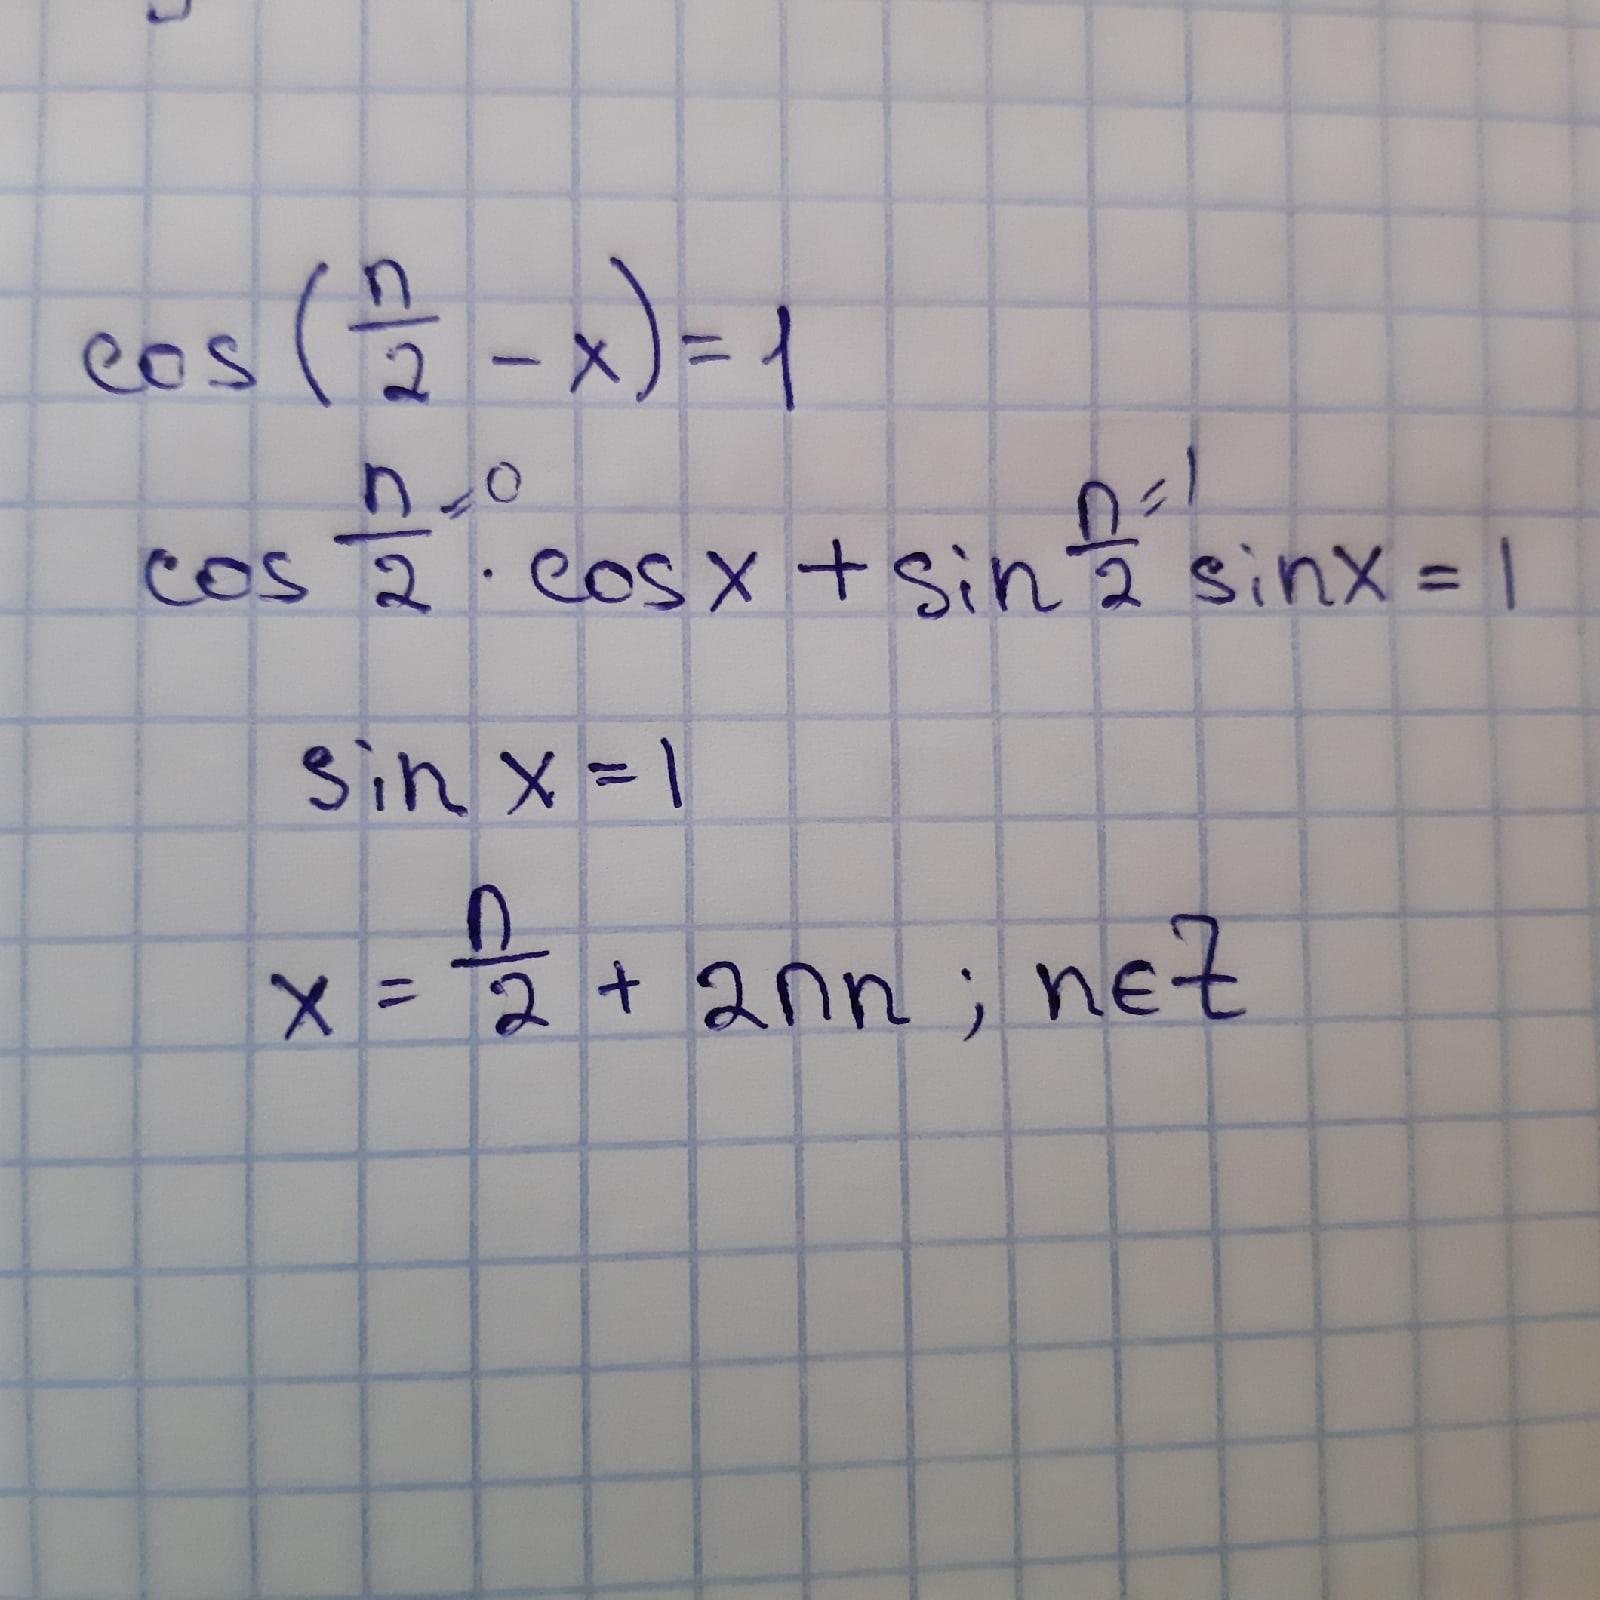 cos(π/2 - x) = 1
cos π/2 = 0 · cos x + sin π/2 = 1 sin x = 1
sin x = 1
x = π/2 + 2πn ; n ∈ Z